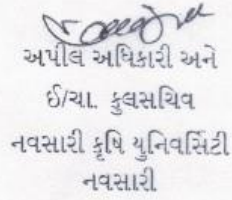 અપીલ અધિકારી અને
ઈ/ચા. કુલસચિવ
નવસારી કૃષિ યુનિવર્સિટી
નવસારી